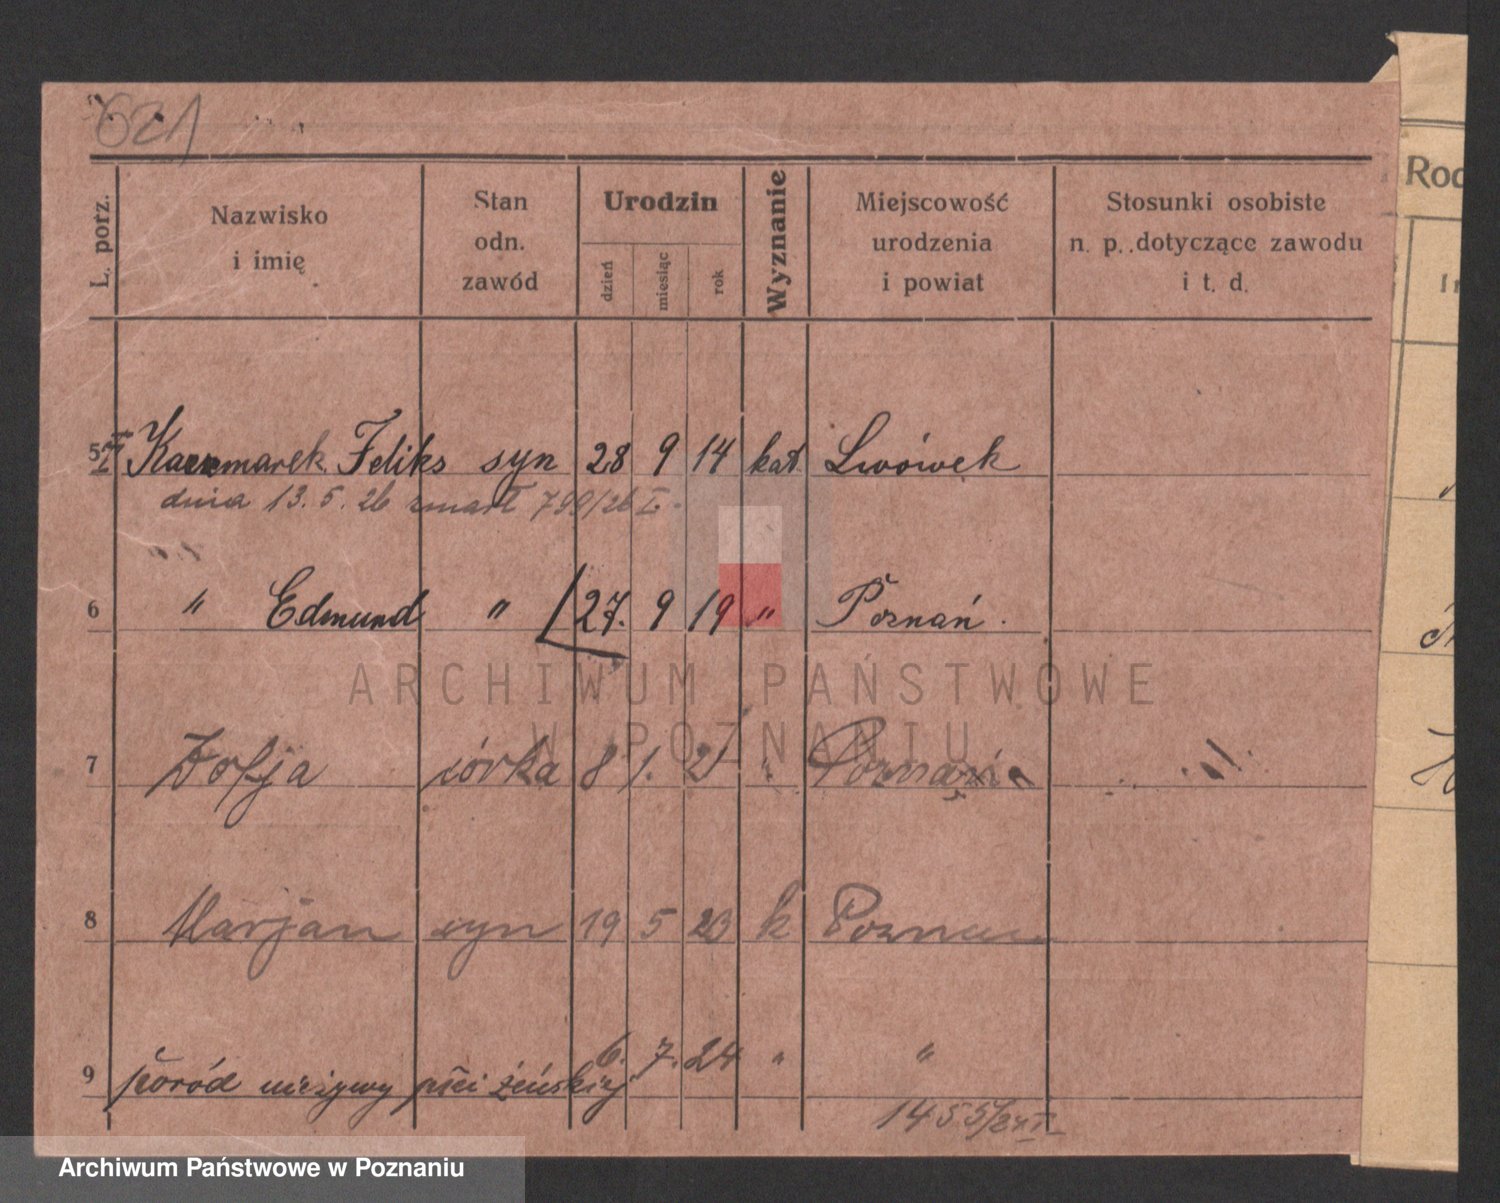 621
L. porz.
Nazwisko
i imię
Stan
odn.
zawód
Urodzin
dzień
miesiąc
rok
Wyznanie
Miejscowość
urodzenia
i powiat
Stosunki osobiste
n. p. dotyczące zawodu
i t. d.
5 Kaczmarek Feliks syn 28 9 14 kat Lwówek
dnia 13. 5. 26 zmarł 799/26 I.
6 " Edmund " 27. 9 19 " Poznań.
7 Zofja córka 8 1. 21 Poznań
8 Marjan syn 19 5 23 k Poznań
9 poród nieżywy płci żeńskiej 6. 7. 24 " "
1455/24 I
Rod
ARCHIWUM PAŃSTWOWE
W POZNANIU
Archiwum Państwowe w Poznaniu